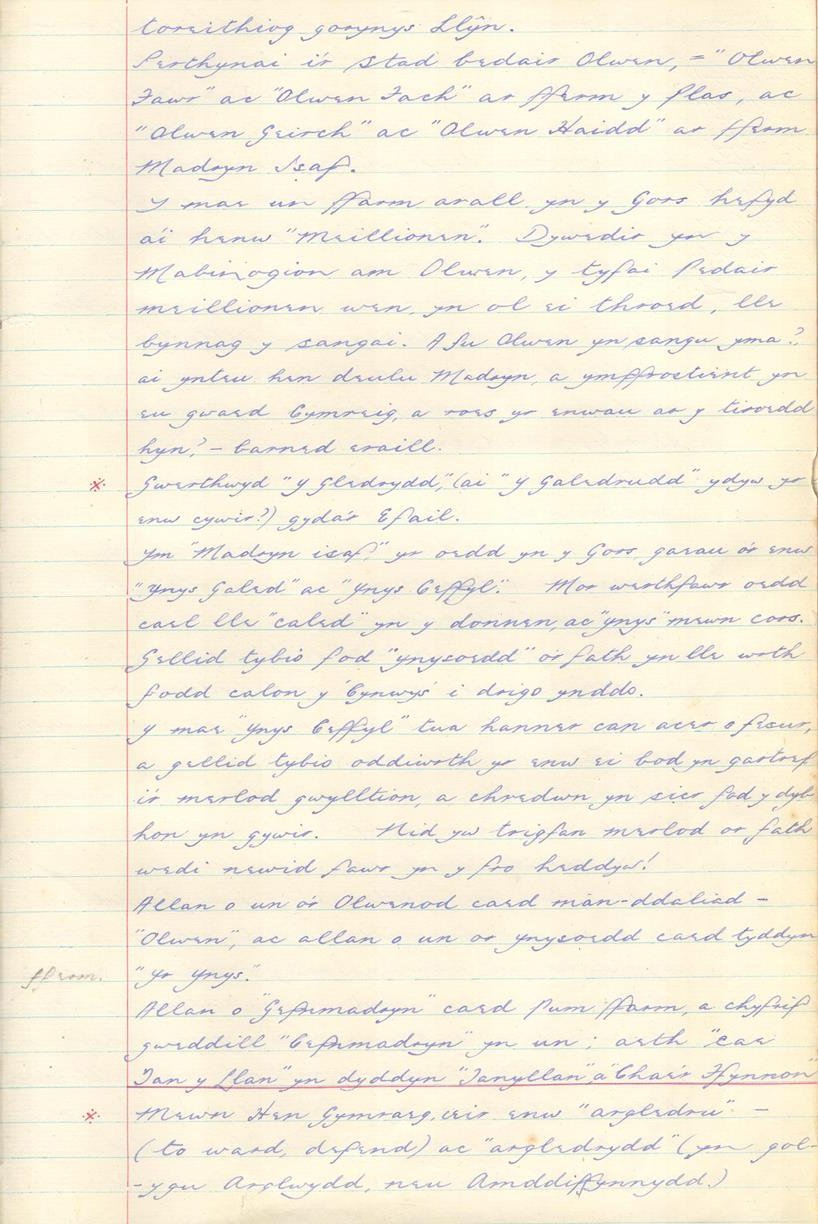 toreithiog gorynys Llŷn.
Perthynai i'r stad bedair Olwen, = "Olwen
Fawr" ac "Olwen Fach" ar fferm y plas, ac
"Olwen Geirch" ac "Olwen Haidd" ar fferm
Madryn Isaf.
Y mae un ffarm arall yn y Gors hefyd
a'i henw "Meillionen". Dywedir yn y
Mabinogion am Olwen, y tyfai Pedair
meillionen wen, yn ol ei throed, lle
bynnag y sangai. A fu Olwen yn sangu yma?
ai ynteu hen deulu Madryn, a ymffrostient yn
eu gwaed Cymreig, a roes yr enwau ar y tiroedd
hyn? – barned eraill.
※ Gwerthwyd "Y Gledrydd," (ai "Y Galedrudd" ydyw yr
enw cywir?) gyda'r Efail.
Ym "Madryn isaf," yr oedd yn y Gors, gaeau o'r enw
"Ynys Galed" ac "Ynys Ceffyl". Mor werthfawr oedd
cael lle "caled" yn y donnen, ac "ynys" mewn cors.
Gellid tybio fod "ynysoedd" o'r fath yn lle wrth
fodd calon y 'Cynwys' i drigo ynddo.
Y mae "Ynys Ceffyl" tua hanner can acer o fesur,
a gellid tybio oddiwrth yr enw ei bod yn gartref
i'r merlod gwylltion, a chredwn yn sicr fod y dyb
hon yn gywir. Nid yw trigfan merlod or fath
wedi newid fawr yn y fro heddyw!
Allan o un o'r Olwenod caed mân-ddaliad –
"Olwen", ac allan o un or ynysoedd caed tyddyn
fferm. "Yr Ynys."
Allan o "Gefnmadryn" caed Pum ffarm, a chyfrif
gweddill "Cefnmadryn" yn un; aeth "cae
Tan y Llan" yn dyddyn "Tanyllan" a "Chae'r Ffynnon"
※ Mewn Hen Gymraeg, ceir enw "argledru" –
(to ward, defend) ac "argledrydd" (yn gol-
-ygu Arglwydd, neu Amddiffynnydd.)